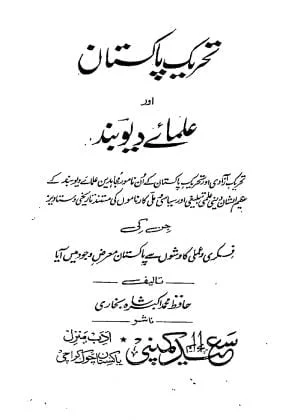 تحریک پاکستان
اور
علمائے دیوبند
تحریک آزادی اور تحریک پاکستان کے اُن نامور مجاہدین علمائے دیوبند کے
عظیم الشان دینی علمی تبلیغی اور سیاسی ملی کارناموں کی مستند تاریخی دستاویز
جن کی
فکری و عملی کاوشوں سے پاکستان معرضِ وجود میں آیا
تالیف
حافظ محمد اکبر شاہ بخاری
ناشر
سعید کمپنی
ادب منزل
پاکستان چوک کراچی